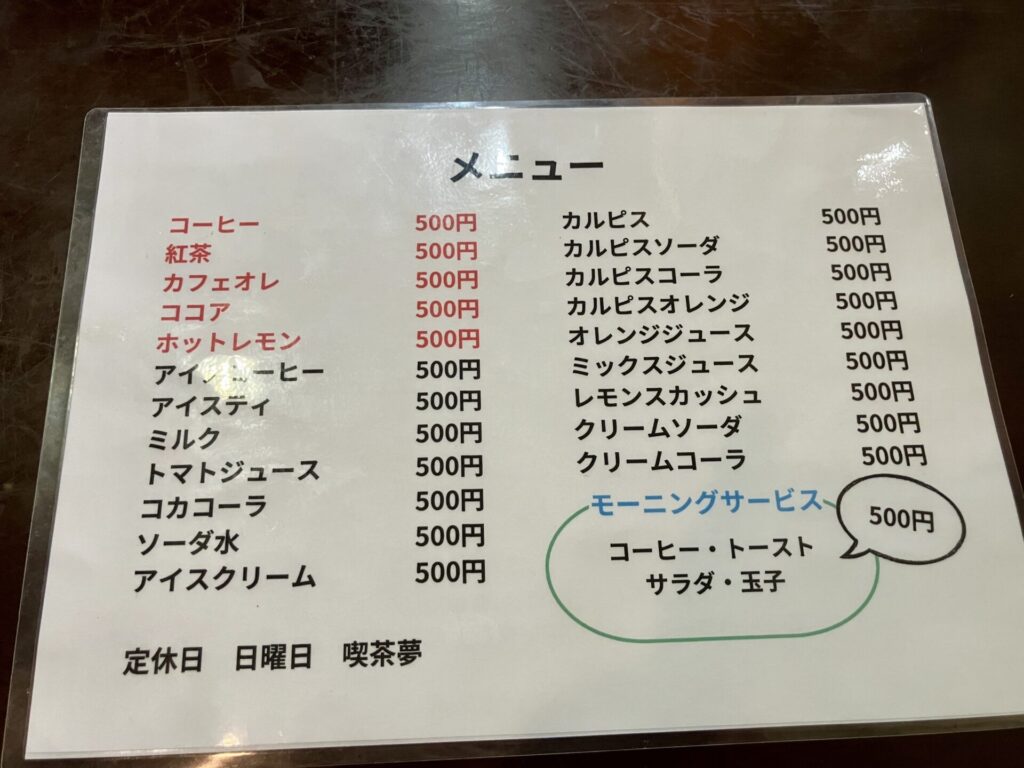 メニュー
コーヒー 500円
紅茶 500円
カフェオレ 500円
ココア 500円
ホットレモン 500円
アイスコーヒー 500円
アイスティ 500円
ミルク 500円
トマトジュース 500円
コカコーラ 500円
ソーダ水 500円
アイスクリーム 500円
カルピス 500円
カルピスソーダ 500円
カルピスコーラ 500円
カルピスオレンジ 500円
オレンジジュース 500円
ミックスジュース 500円
レモンスカッシュ 500円
クリームソーダ 500円
クリームコーラ 500円
モーニングサービス 500円
コーヒー・トースト
サラダ・玉子
定休日 日曜日 喫茶夢